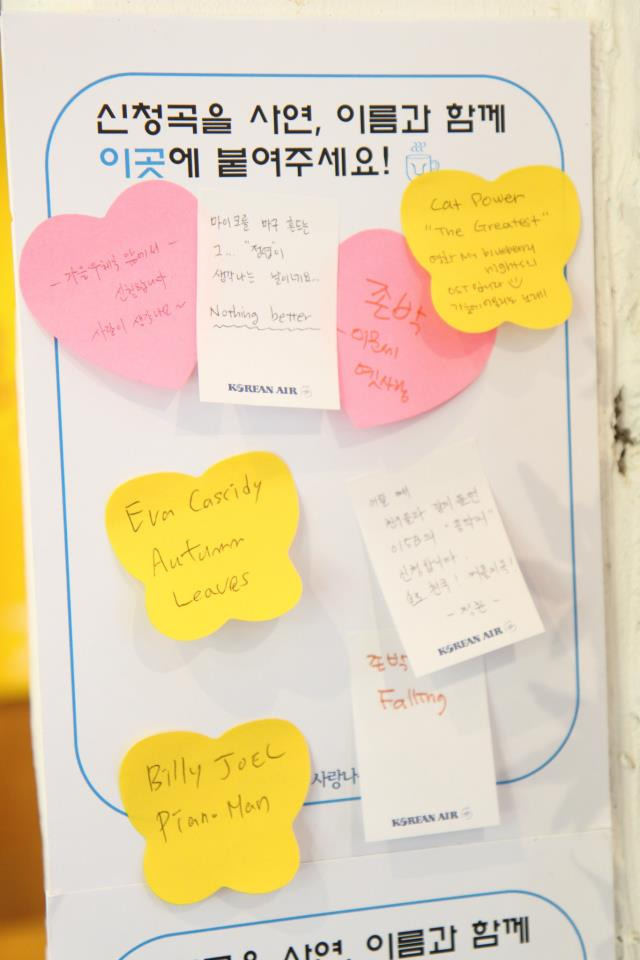 신청곡을 사연, 이름과 함께
이곳에 붙여주세요!
- 가을우체국 앞에서 -
신청합니다
사람이 생각나요~
마이크를 마구 흔드는
그... "정엽"이
생각나는 날이네요..
Nothing better
KOREAN AIR
존박
이문세
Cat Power
"The Greatest"
영화 My blueberry
nights의
OST 입니다
Eva Cassidy
Autumn
Leaves
어릴 때
친구들과 같이 듣던
015B의
신청합니다.
KOREAN AIR
존박
Falling
KOREAN AIR
Billy JOEL
Piano Man
사랑나
사연, 이름과 함께